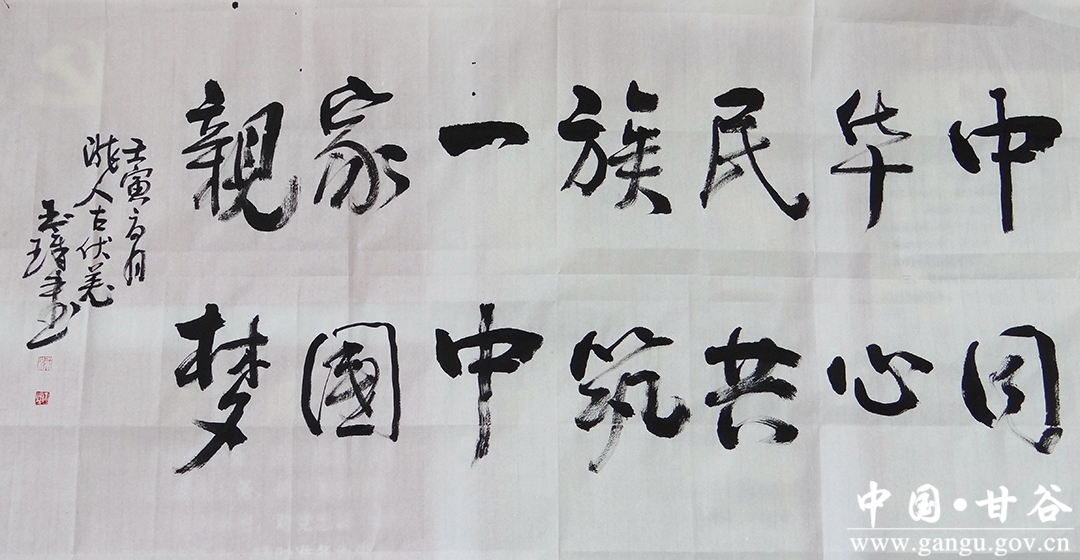 中华民族一家親
同心共筑中國梦
壬寅六月
古伏羲
中国·甘谷
www.gangu.gov.cn